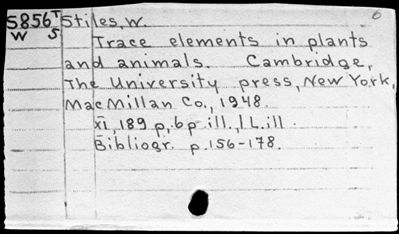 S856T Stiles, W.
W 5 Trace elements in plants
and animals. Cambridge,
The University press, New York,
MacMillan Co., 1948.
XI, 189 p, 6 p ill., 1 L. ill.
Bibliogr. p. 156-178.